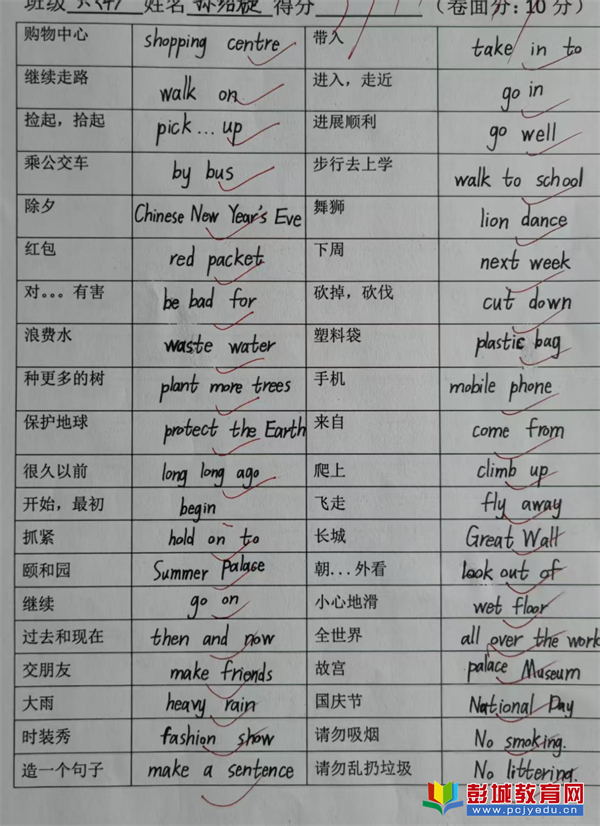 班级 六(4) 姓名 孙绍旋 得分 （卷面分：10分）
购物中心 shopping centre 带入 take in to
继续走路 walk on 进入，走近 go in
捡起，拾起 pick...up 进展顺利 go well
乘公交车 by bus 步行去上学 walk to school
除夕 Chinese New Year's Eve 舞狮 lion dance
红包 red packet 下周 next week
对。。。有害 be bad for 砍掉，砍伐 cut down
浪费水 waste water 塑料袋 plastic bag
种更多的树 plant more trees 手机 mobile phone
保护地球 protect the Earth 来自 come from
很久以前 long long ago 爬上 climb up
开始，最初 begin 飞走 fly away
抓紧 hold on to 长城 Great Wall
颐和园 Summer Palace 朝...外看 look out of
继续 go on 小心地滑 wet floor
过去和现在 then and now 全世界 all over the work
交朋友 make friends 故宫 palace Museum
大雨 heavy rain 国庆节 National Day
时装秀 fashion show 请勿吸烟 No smoking.
造一个句子 make a sentence 请勿乱扔垃圾 No littering.
彭城教育网
www.pcjyedu.cn